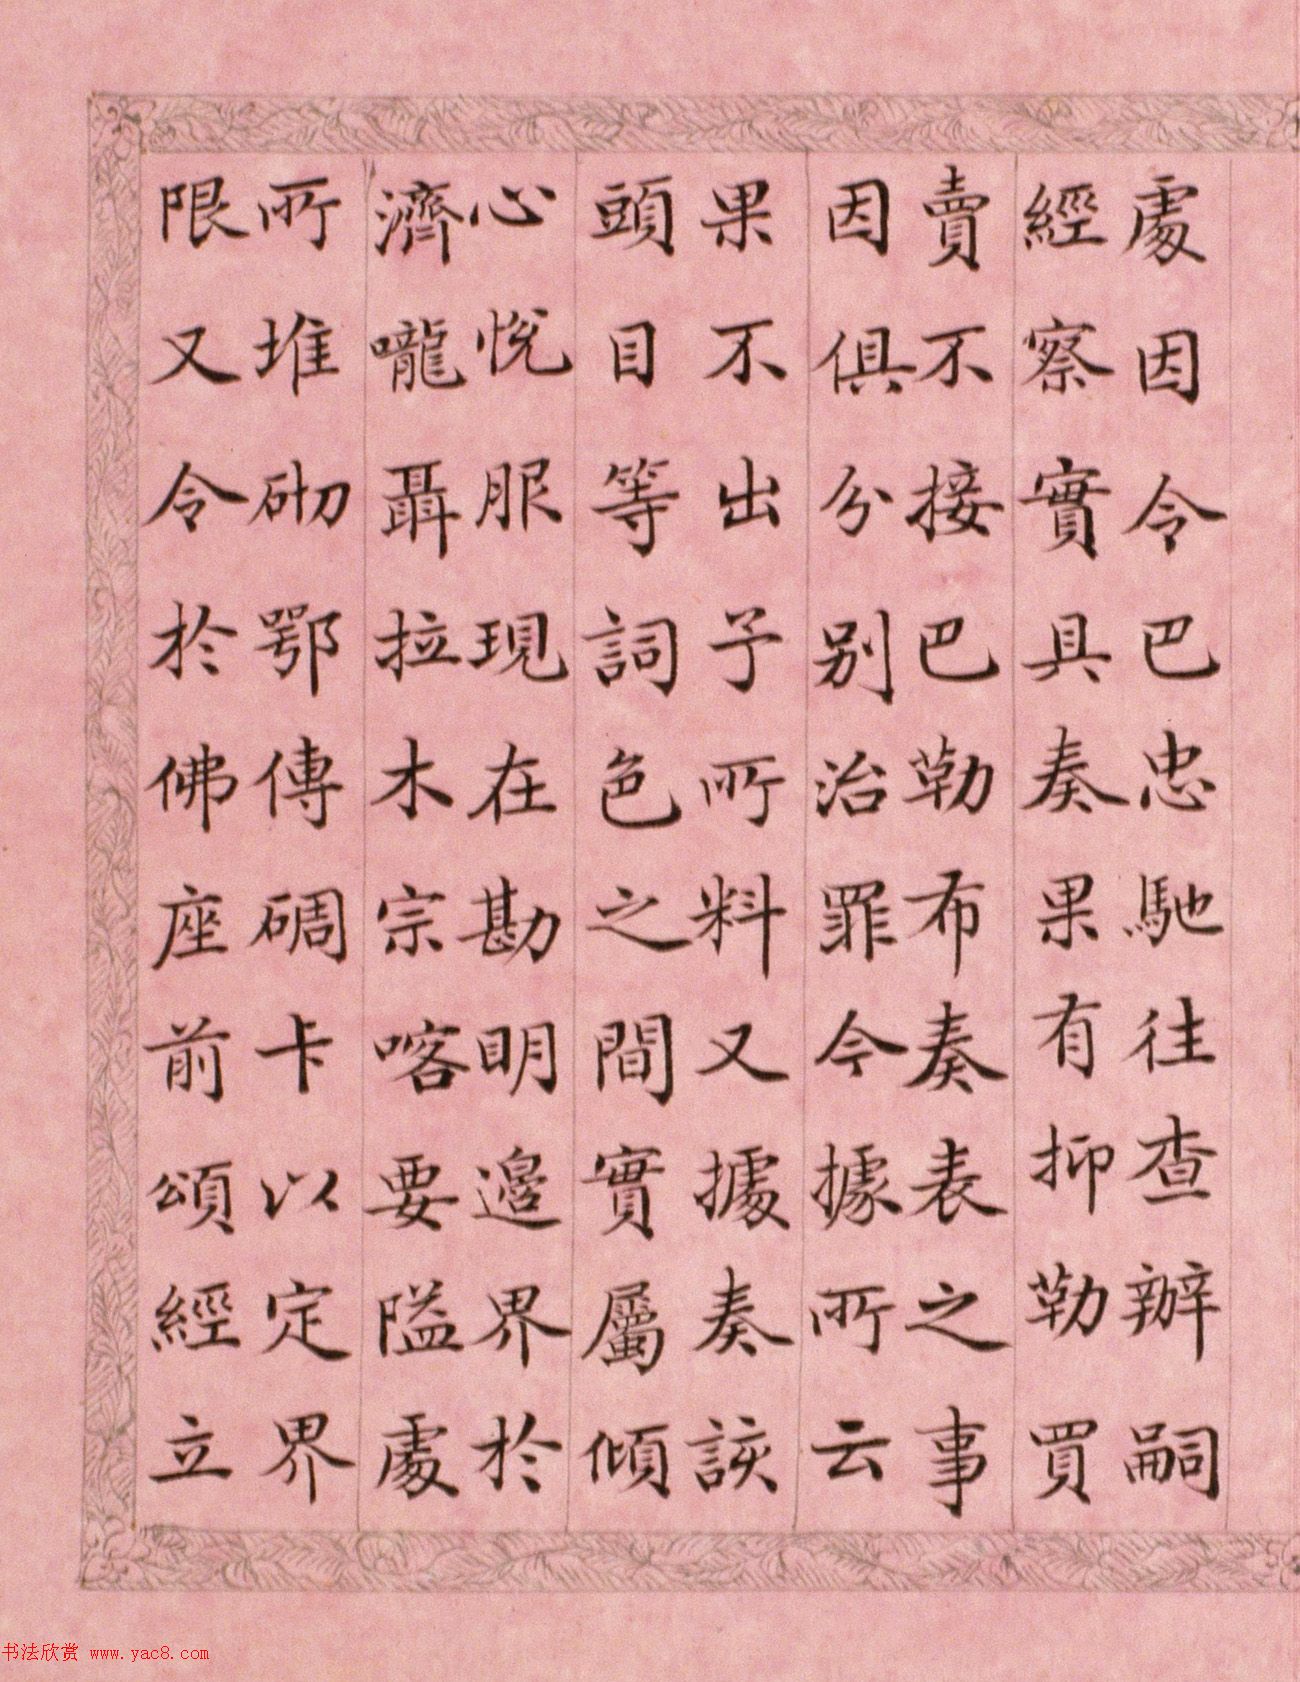 處因令巴忠馳往查辦嗣
經察實具奏果有抑勒買
賣不接巴勒布奏表之事
因俱分別治罪今據所云
果不出予所料又據奏該
頭目等詞色之間實屬傾
心悅服現在勘明邊界於
濟嚨聶拉木宗喀要隘處
所堆砌鄂博碉卡以定界
限又令於佛座前頌經立
书法欣赏 www.yac8.com